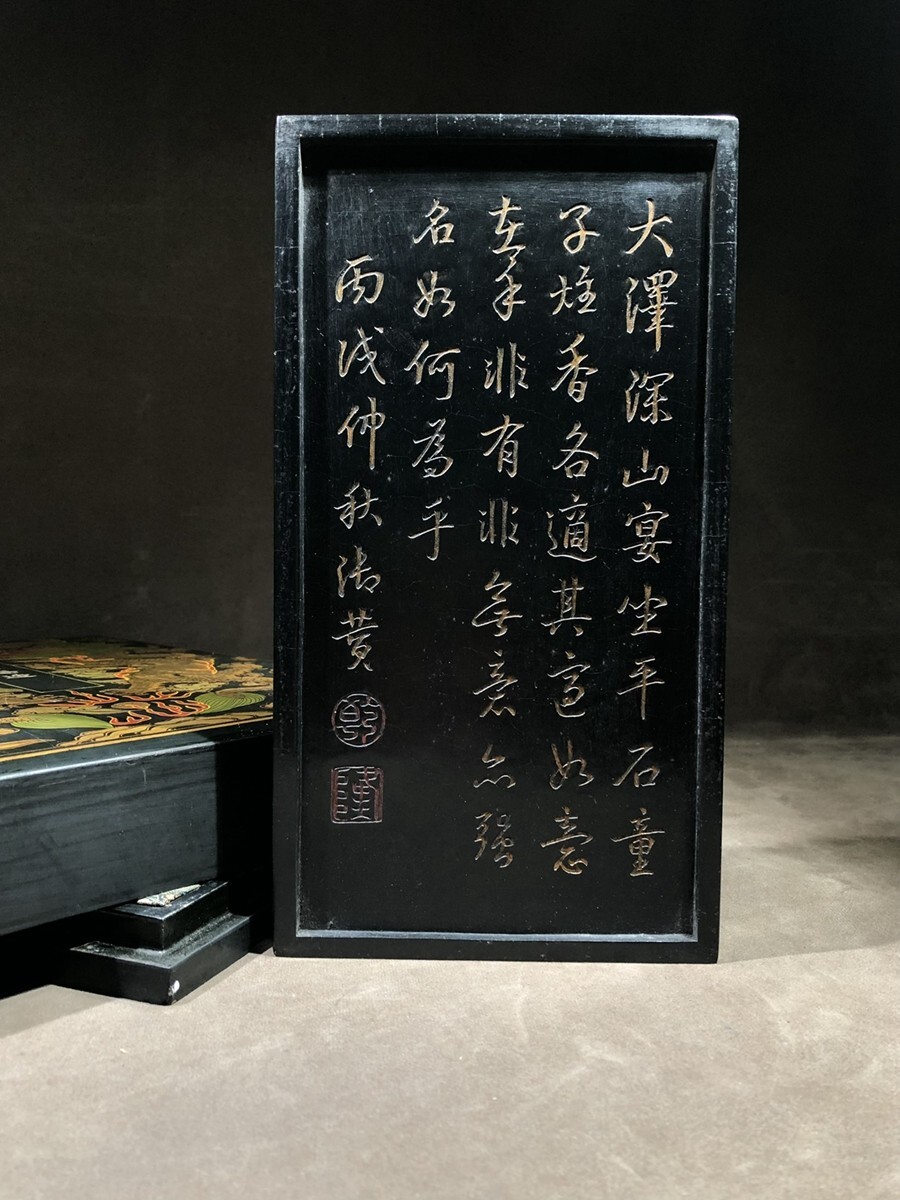 大澤深山宴坐平石童
子炷香各適其適如意
在手非有非無意亦強
名如何為乎
丙戌仲秋御贊
乾
隆